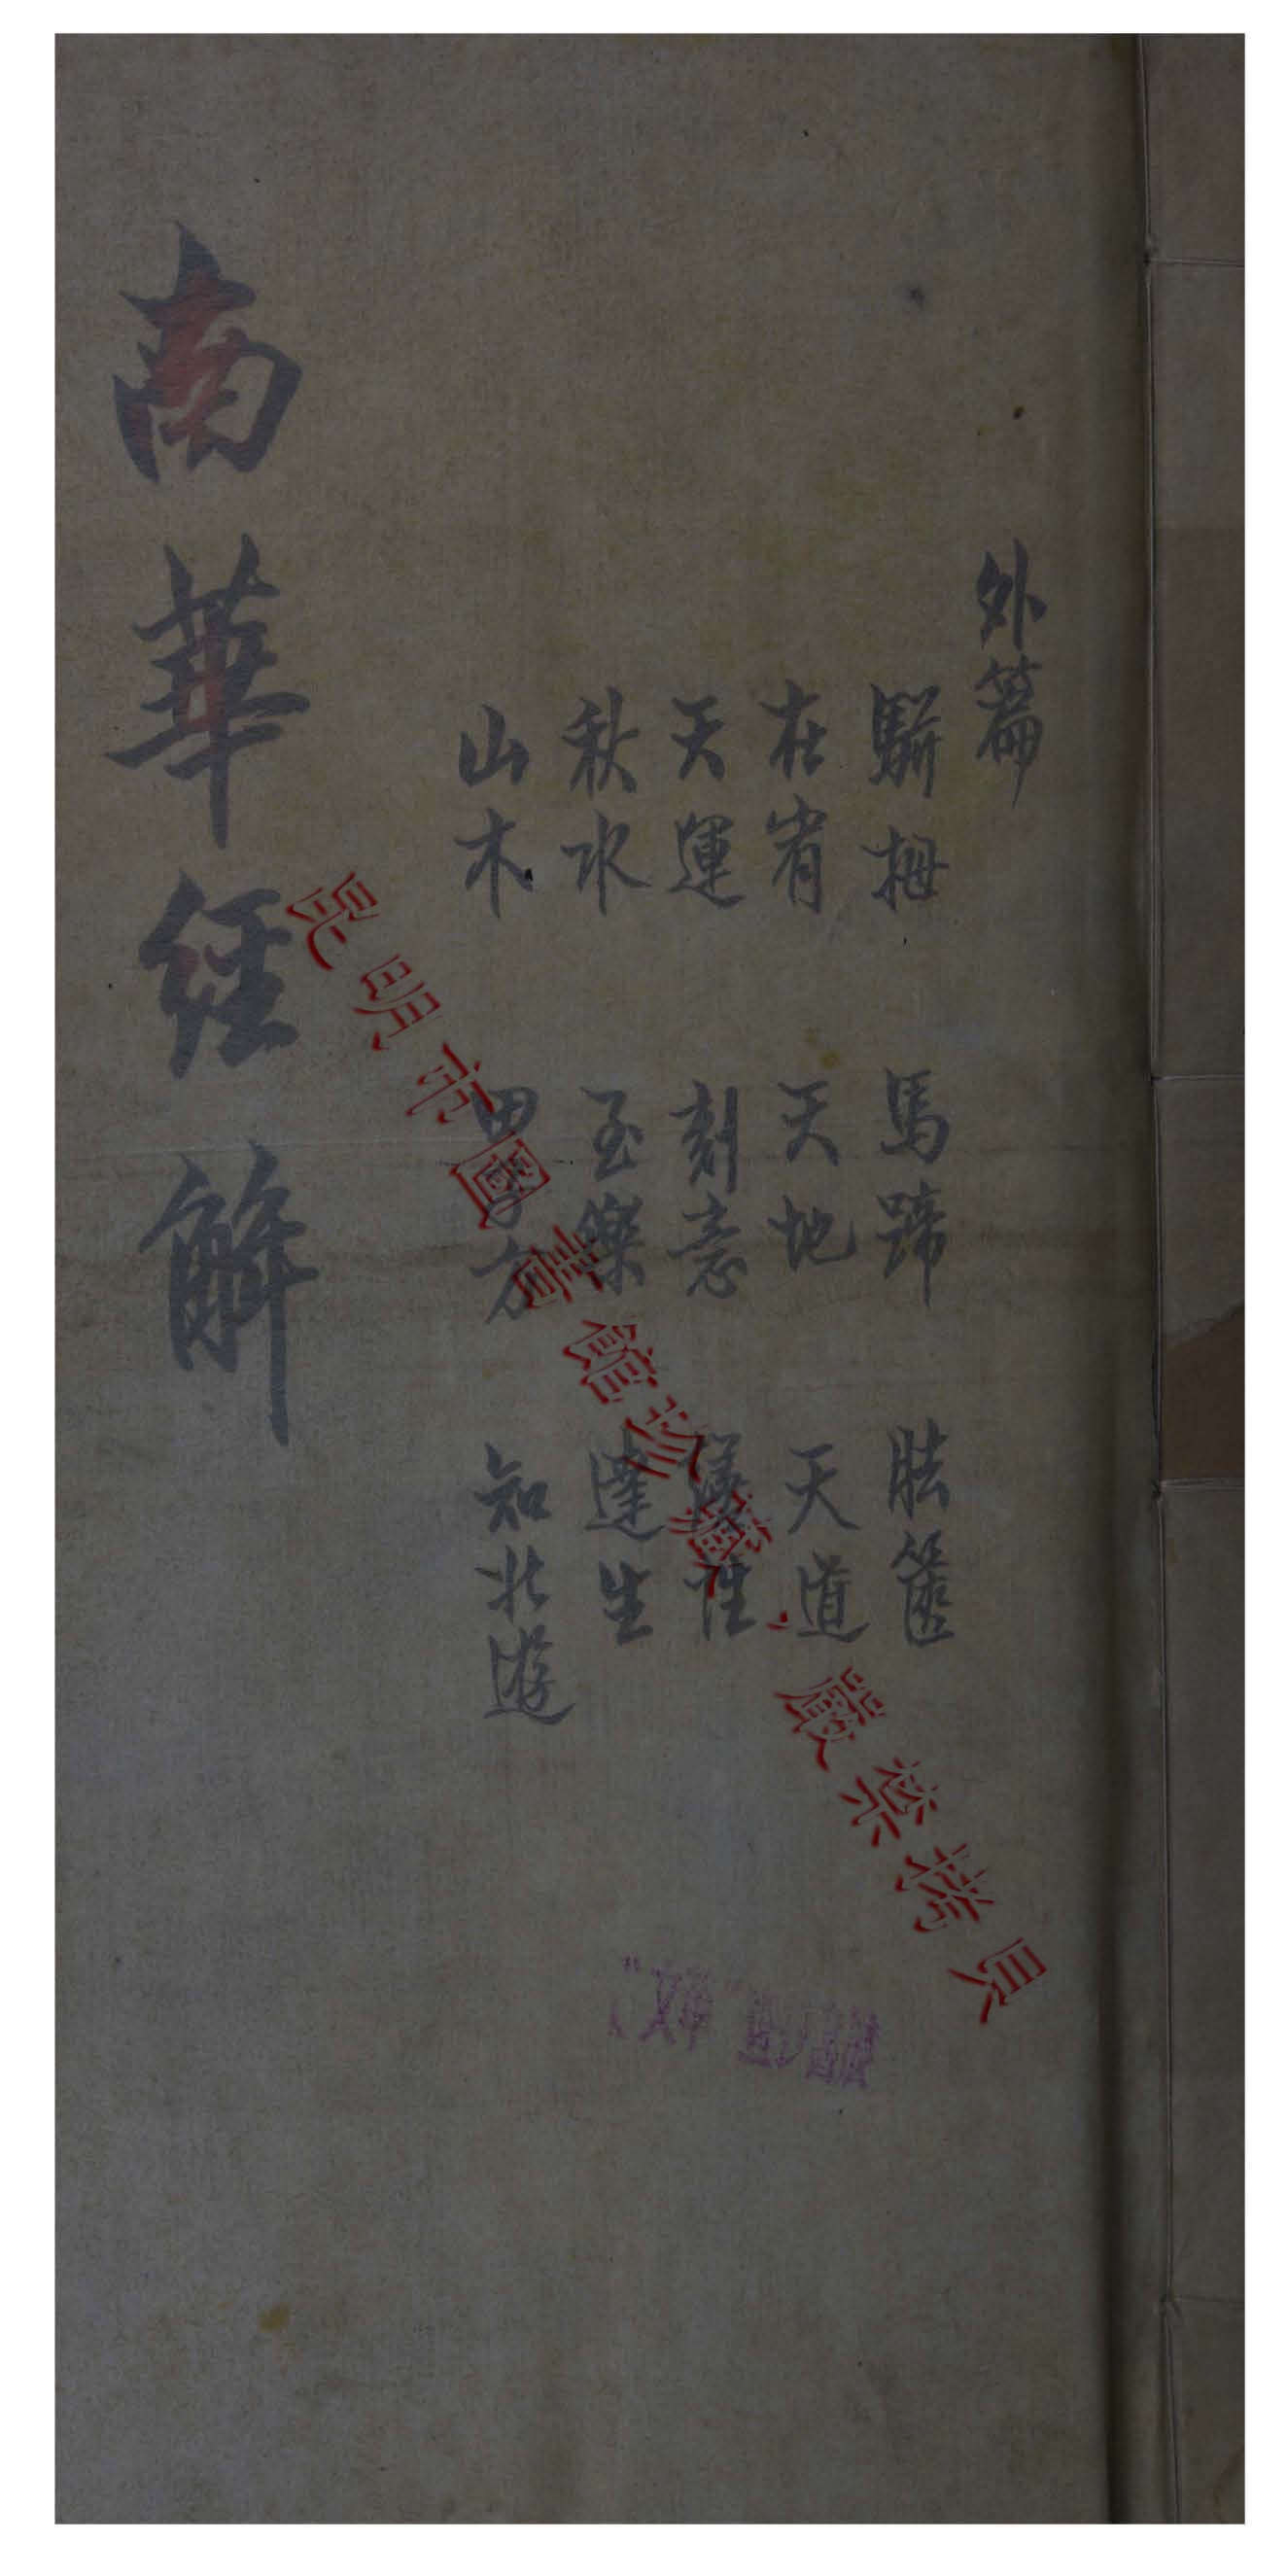 外篇
駢拇 馬蹄 胠篋
在宥 天地 天道
天運 刻意 繕性
秋水 至樂 達生
山木 田子方 知北遊
南華經解
昆明市圖書館珍藏，嚴禁拷貝